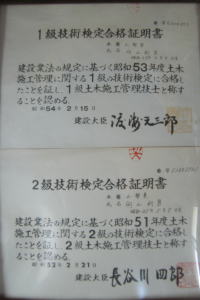 1級技術検定合格証明書
本籍
氏名
建設業法の規定に基づく昭和53年度土木
施工管理に関する1級の技術検定に合格し
たことを証し1級土木施工管理技士と称す
ることを認める。
昭和54年2月15日
建設大臣 渡海元三郎
2級技術検定合格証明書
本籍
氏名
建設業法の規定に基づく昭和51年度土木
施工管理に関する2級の技術検定に合格し
たことを証し2級土木施工管理技士と称す
ることを認める。
昭和52年2月21日
建設大臣 長谷川四郎